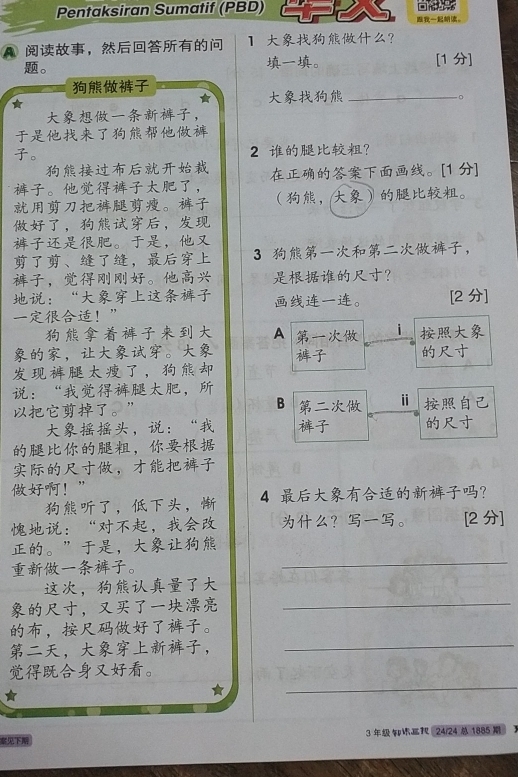 Pentaksiran Sumatif (PBD)
华文
跟我一起朗读。
A 阅读故事，然后回答所有的问
题。
狗熊做裤子
大象想做一条新裤子，
于是他找来了狗熊帮他做裤
子。
狗熊接过布后就开始裁
裤子。他觉得裤子太肥了，
就用剪刀把裤腿剪瘦。裤子
做好了，狗熊试穿后，发现
裤子还是很肥。于是，他又
剪了剪、缝了缝，最后穿上
裤子，觉得刚刚好。他高兴
地说：“大象穿上这条裤子
一定很合适！”
狗熊拿着裤子来到大
象的家，让大象试穿。大象
发现裤腿太瘦了，狗熊却
说：“我觉得裤腿太肥，所
以把它剪掉了。”
大象摇摇头，说：“我
的腿比你的腿粗，你要根据
实际的尺寸做，才能把裤子
做好啊！”
狗熊听了，低下头，惭
愧地说：“对不起，我会改
正的。”于是，大象让狗熊
重新做一条裤子。
这次，狗熊认真量了大
象的尺寸，又买了一块漂亮
的布，按尺码做好了裤子。
第二天，大象穿上新裤子，
觉得既合身又好看。
1 大象找狗熊做什么？
填一填。 [1 分]
大象找狗熊 ____________。
2 谁的腿比较粗？
在正确的答案下面画线。[1 分]
（狗熊，大象）的腿比较粗。
3 狗熊第一次和第二次做裤子，
是根据谁的尺寸？
画线连一连。 [2 分]
A 第一次做
裤子
i 按照大象
的尺寸
B 第二次做
裤子
ii 按照自己
的尺寸
4 最后大象有合适的新裤子吗？
为什么？写一写。 [2 分]
3 年级 24/24 总 1885 期
案见下期